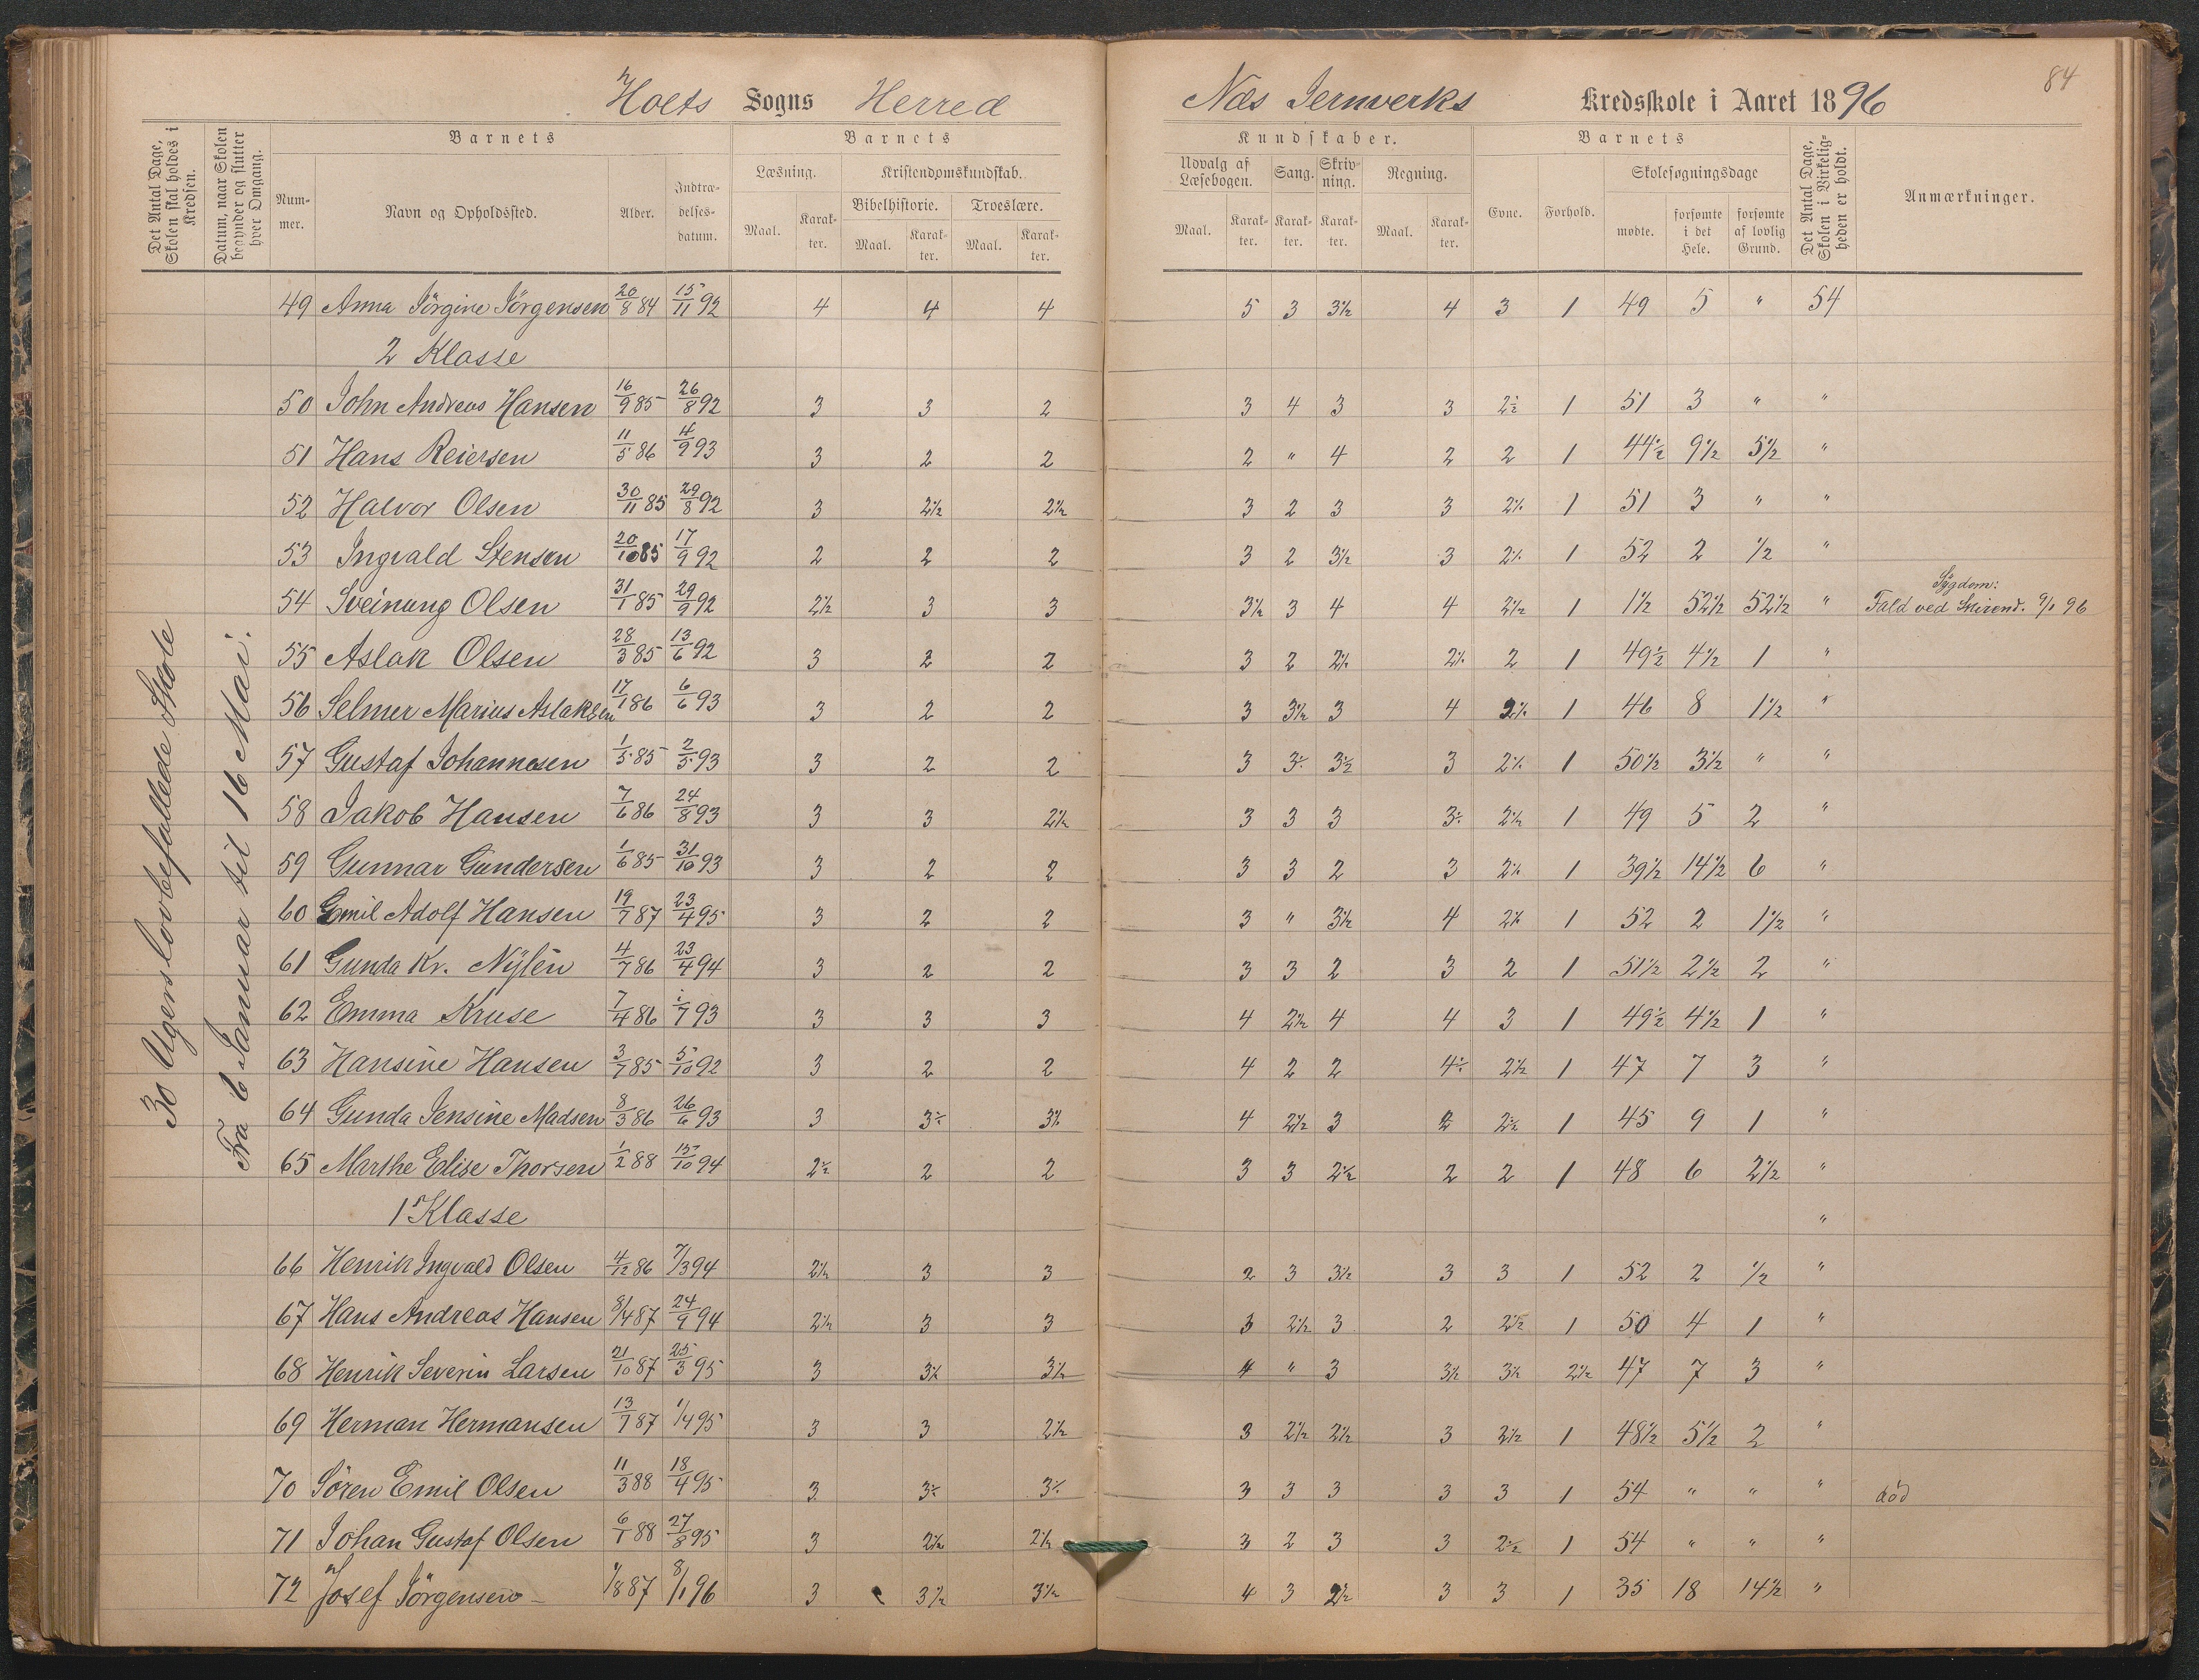 84
Holts Sogns Herred Næs Jernverks Kredsskole i Aaret 1896
Det Antal Dage, Skolen skal holdes i Kredsen.
Datum, naar Skolen begynder og slutter hver Omgang.
Barnets Barnets Kundskaber. Barnets
Nummer. Navn og Opholdssted. Alder. Indtrædelsesdatum.
Læsning. Kristendomskundskab. Udvalg af Læsebogen. Sang. Skrivning. Regning. Evne. Forhold. Skolesøgningsdage
Bibelhistorie. Troeslære.
Maal. Karakter. Maal. Karakter. Maal. Karakter. Maal. Karakter. Karakter. Karakter. Maal. Karakter. mødte. forsømte i det Hele. forsømte af lovlig Grund.
Det Antal Dage, Skolen i Virkeligheden er holdt.
Anmærkninger.
30 Ugers lovbefallede Skole
Fra 6 Januar til 16 Mai.
49 Anna Jörgine Jörgensen 20/8 84 15/11 92 4 4 4 5 3 3½ 4 3 1 49 5 " 54
2 Klasse
50 John Andreas Hansen 16/9 85 26/8 92 3 3 2 3 4 3 3 2½ 1 51 3 " "
51 Hans Reiersen 11/5 86 4/9 93 3 2 2 2 " 4 2 2 1 44½ 9½ 5½ "
52 Halvor Olsen 30/11 85 29/8 92 3 2½ 2½ 3 2 3 3 2½ 1 51 3 " "
53 Ingvald Stensen 20/10 85 17/9 92 2 2 2 3 2 3½ 3 2½ 1 52 2 ½ "
54 Sveinung Olsen 31/1 85 29/9 92 2½ 3 3 3½ 3 4 4 2½ 1 1½ 52½ 52½ " Sygdom: Fald ved Skirend. 9/1 96
55 Aslak Olsen 28/3 85 13/6 92 3 2 2 3 2 2½ 2½ 2 1 49½ 4½ 1 "
56 Selmer Marius Aslaksen 17/1 86 6/6 93 3 2 2 3 3½ 3 4 2½ 1 46 8 1½ "
57 Gustaf Johannesen 1/5 85 2/5 93 3 2 2 3 3½ 3½ 3 2½ 1 50½ 3½ " "
58 Jakob Hansen 7/6 86 24/8 93 3 3 2½ 3 3 3 3½ 2½ 1 49 5 2 "
59 Gunnar Gundersen 1/6 85 31/10 93 3 2 2 3 3 2 3 2½ 1 39½ 14½ 6 "
60 Emil Adolf Hansen 19/7 87 23/4 95 3 2 2 3 " 3½ 4 2½ 1 52 2 1½ "
61 Gunda Kr. Nylén 4/7 86 23/4 94 3 2 2 3 3 2 3 2 1 51½ 2½ 2 "
62 Emma Kruse 7/4 86 1/7 93 3 3 3 4 2½ 4 4 3 1 49½ 4½ 1 "
63 Hansine Hansen 3/7 85 5/10 92 3 2 2 4 2 2 4½ 2½ 1 47 7 3 "
64 Gunda Jensine Madsen 8/3 86 26/6 93 3 3½ 3½ 4 2½ 3 2 2½ 1 45 9 1 "
65 Marthe Elise Thorsen 1/2 88 15/10 94 2½ 2 2 3 3 2½ 2 2 1 48 6 2½ "
1 Klasse "
66 Henrik Ingvald Olsen 4/12 86 7/3 94 2½ 3 3 2 3 3½ 3 3 1 52 2 ½ "
67 Hans Andreas Hansen 8/4 87 24/9 94 2½ 3 3 3 2½ 3 2 2½ 1 50 4 1 "
68 Henrik Severin Larsen 21/10 87 25/3 95 3 3½ 3½ 4 " 3 3½ 3½ 2½ 47 7 3 "
69 Herman Hermansen 13/7 87 1/4 95 3 3 2½ 3 2½ 2½ 3 2½ 1 48½ 5½ 2 "
70 Sören Emil Olsen 11/3 88 18/4 95 3 3½ 3½ 3 3 3 3 3 1 54 " " " död
71 Johan Gustaf Olsen 6/1 88 27/8 95 3 2½ 2½ 3 2 3 3 2½ 1 54 " " "
72 Josef Jörgensen 1/8 87 8/1 96 3 3½ 3½ 4 3 2½ 3 3 1 35 18 14½ "